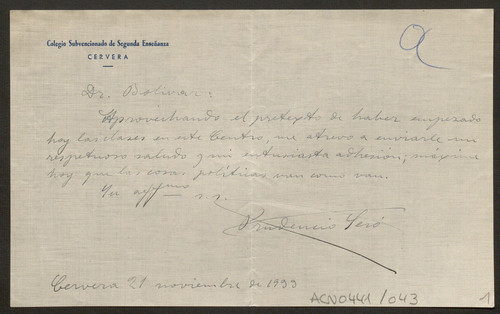 Colegio Subvencionado de Segunda Enseñanza
CERVERA
a
Dr. Bolívar:
Aprovechando el pretexto de haber empezado
hoy las clases en este Centro, me atrevo a enviarle un
respetuoso saludo y mi entusiasta adhesión, máxime
hoy que las cosas políticas van como van.
Su affmo s.s.
Prudencio Seró
Cervera 21 noviembre de 1933
ACN0441/043
1